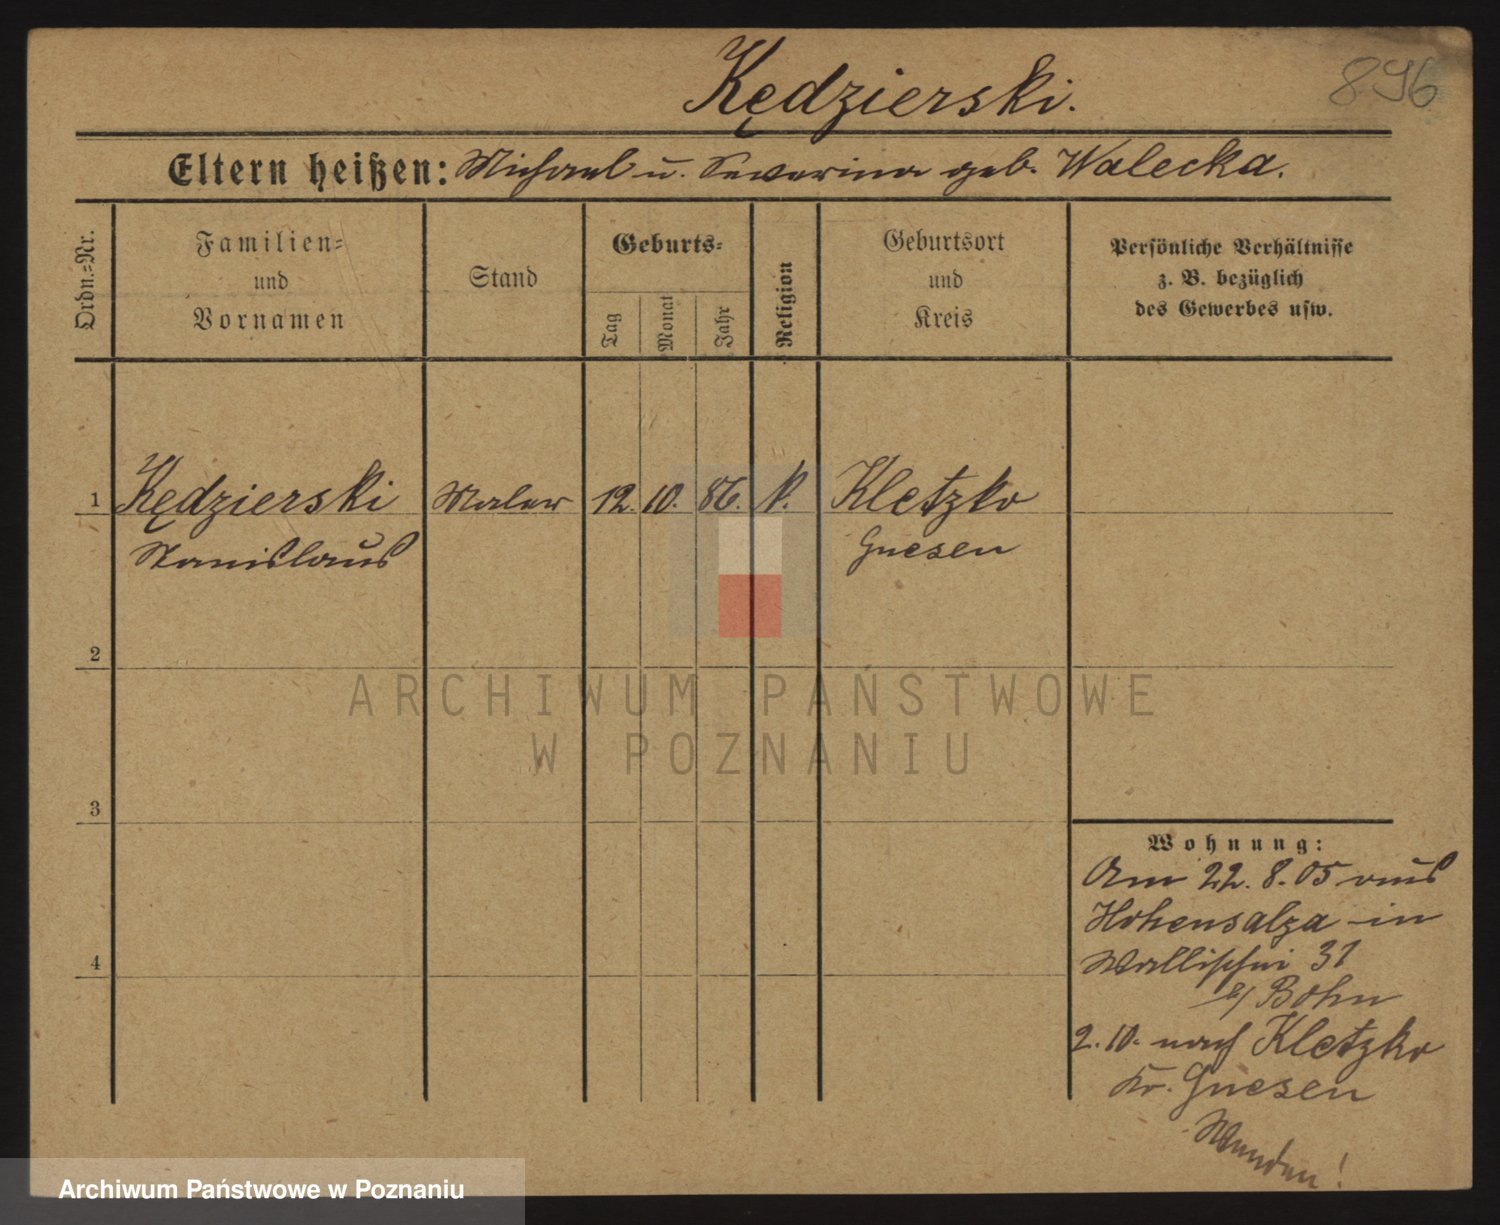 Kędzierski.
896
Eltern heißen: Michael u. Severina geb. Walecka.
Ordn.=Nr.
Familien=
und
Vornamen
Stand
Geburts=
Tag
Monat
Jahr
Religion
Geburtsort
und
Kreis
Persönliche Verhältnisse
z. B. bezüglich
des Gewerbes usw.
1 Kędzierski Maler 12. 10. 86. k. Kletzko
Stanislaus Gnesen
2
3
4
Wohnung:
Am 22. 8. 05 aus
Hohensalza in
Wallischei 31
b/ Bohn
2. 10. nach Kletzko
Kr. Gnesen
Wenden!
ARCHIWUM PAŃSTWOWE
W POZNANIU
Archiwum Państwowe w Poznaniu